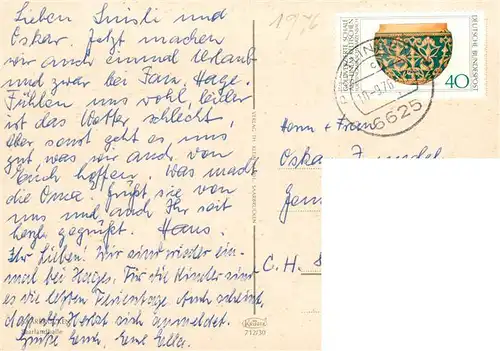 Lieben Suisli und
Oskar. Jetzt machen
wir auch einmal Urlaub
und zwar bei Fam. Hage.
Fühlen uns wohl, leider
ist das Wetter schlecht,
Aber sonst geht es uns
gut was wir auch von
Euch hoffen. Was macht
die Oma. Grüßt sie von
uns und auch Ihr seit
herzl. gegrüßt. Hans.
Ihr Lieben! Wir sind wieder ein-
mal bei Hages. Für die Kinder sind
es die letzten Ferientage. Auch scheint,
daß der Herbst sich anmeldet.
Grüße Euch, Eure Ella.
1976
GOLDVERZIERTE SCHALE
DEUTSCHE BUNDESPOST
40
6625
Herrn + Frau
Oskar
C.H.
Saarlandhalle
712/30